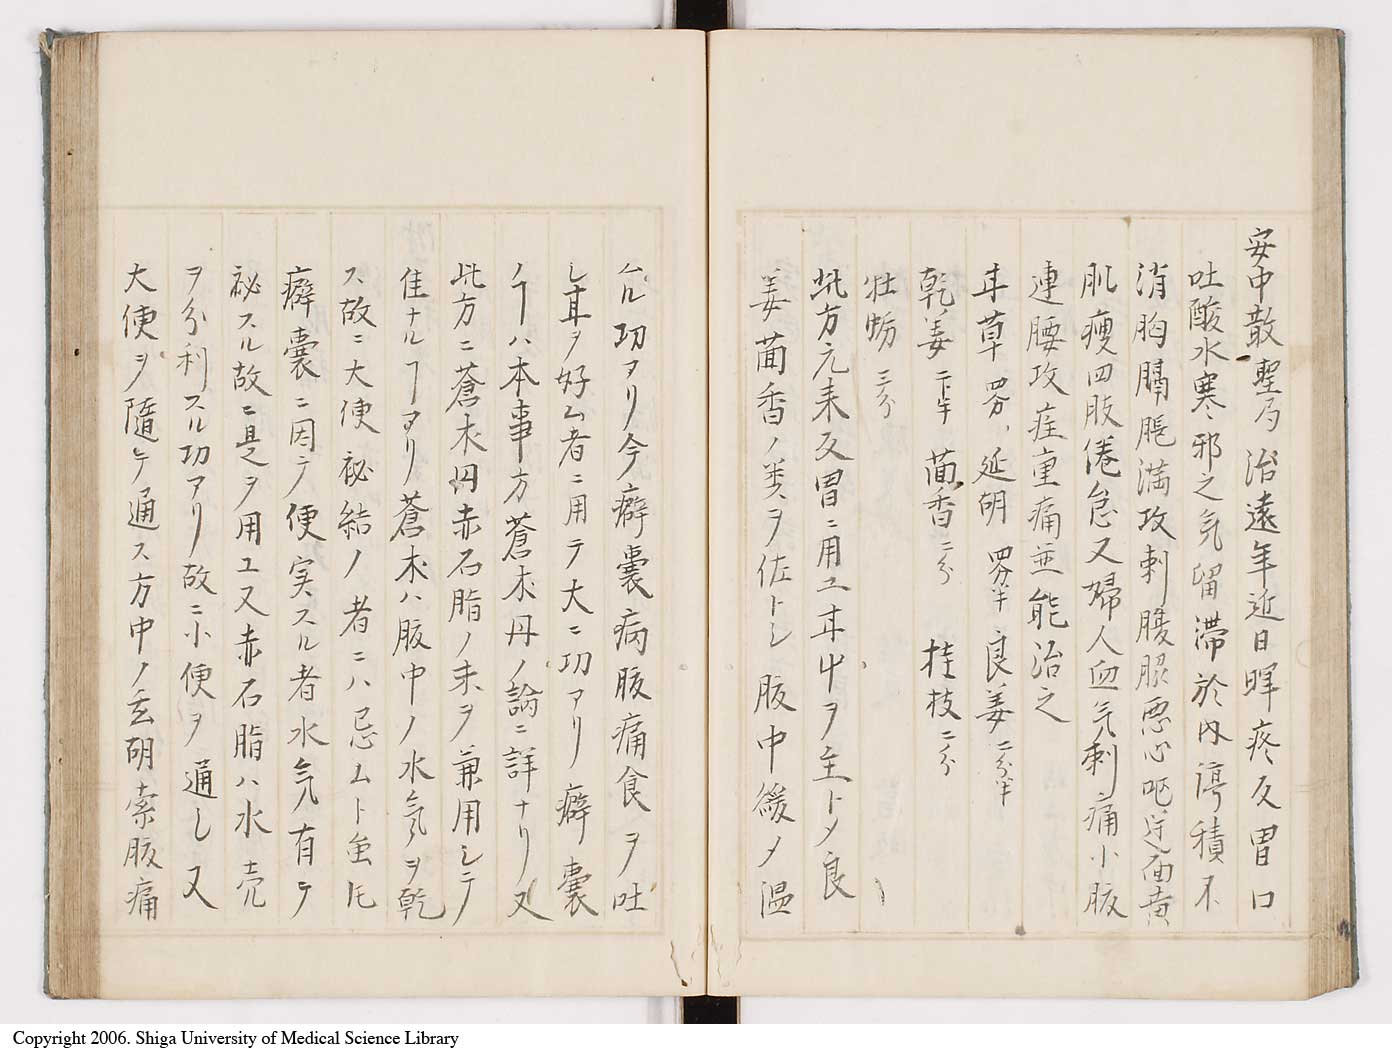 安中散 聖乃 治遠年近日脾疼反胃口
吐酸水寒邪之気留滞於内停積不
消胸膈脹満攻刺腹脇悪心呕逆面黄
肌痩四肢倦怠又婦人血気刺痛小腹
連腰攻疰重痛並能治之
甘草 四分 延胡 四分半 良姜 二分半
乾姜 二分半 茴香 二分 桂枝 二分
牡蛎 三分
此方元来反胃ニ用ユ甘中ヲ主トメ良
姜茴香ノ类ヲ佐トシ腹中緩メ温
ムル功アリ今癖嚢病腹痛食ヲ吐
シ甘ヲ好ム者ニ用テ大ニ功アリ癖嚢
ノヿハ本事方蒼朮丹ノ論ニ詳ナリ又
此方ニ蒼朮丹赤石脂ノ末ヲ兼用シテ
佳ナルヿアリ蒼朮ハ腹中ノ水気ヲ乾
ス故ニ大便秘結ノ者ニハ忌ムト虽𪜈
癖嚢ニ因テ便実スル者水気有テ
秘スル故ニ是ヲ用ユ又赤石脂ハ水壳
ヲ分利スル功アリ故ニ小便ヲ通シ又
大便ヲ随テ通ス方中ノ玄胡索腹痛
Copyright 2006. Shiga University of Medical Science Library